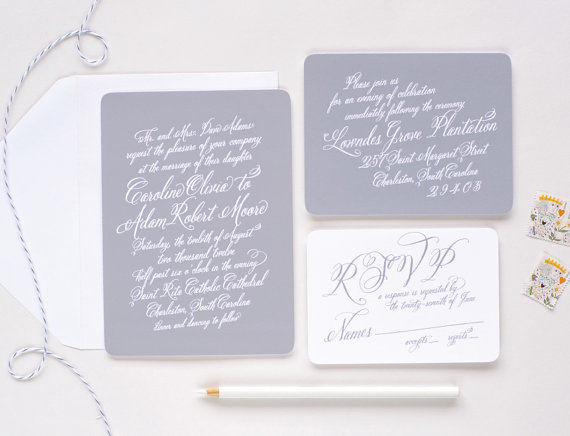 Mr. and Mrs. Dave Adams
request the pleasure of your company
at the marriage of their daughter
Caroline Olivia To
Adam Robert Moore
Saturday, the twelfth of August
two thousand twelve
Half past six o clock in the evening
Saint Rita Catholic Cathedral
Charleston, South Carolina
dinner and dancing to follow
Please join us
for an evening of celebration
immediately following the ceremony
Lowndes Grove Plantation
257 Saint Margaret Street
Charleston, South Carolina
29403
RSVP
a response is requested by
the twenty-seventh of June
Names
accepts regrets